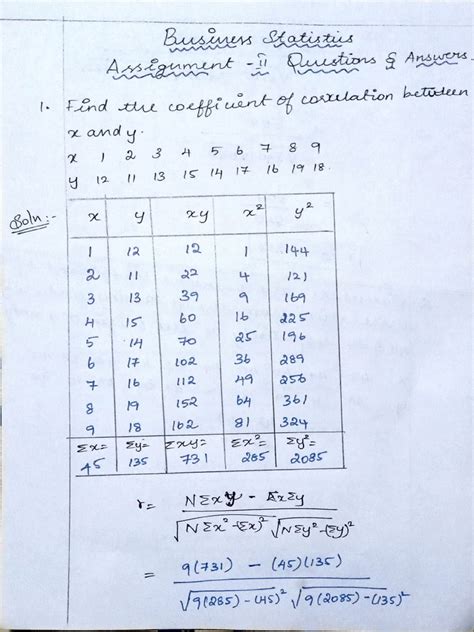 Business Statistics
Assignment - II Questions & Answers.
1. Find the coefficient of correlation between
x and y.
x 1 2 3 4 5 6 7 8 9
y 12 11 13 15 14 17 16 19 18.
Soln:-
x y xy x² y²
1 12 12 1 144
2 11 22 4 121
3 13 39 9 169
4 15 60 16 225
5 14 70 25 196
6 17 102 36 289
7 16 112 49 256
8 19 152 64 361
9 18 162 81 324
Σx= Σy= Σxy= Σx²= Σy²=
45 135 731 285 2085
r= NΣxy - ΣxΣy
√NΣx²-(Σx)² √NΣy²-(Σy)²
= 9(731) - (45)(135)
√9(285)-(45)² √9(2085)-(135)²